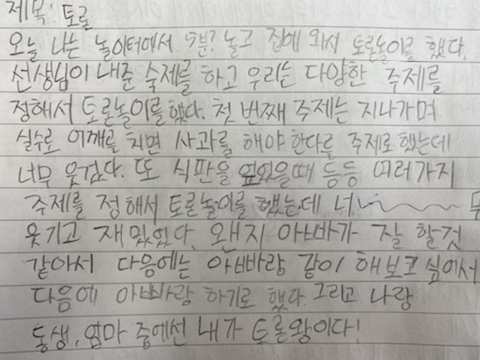 제목: 토론
오늘 나는 놀이터에서 5분? 놀고 집에 와서 토론놀이를 했다.
선생님이 내준 숙제를 하고 우리는 다양한 주제를
정해서 토론놀이를 했다. 첫 번째 주제는 지나가며
실수로 어깨를 치면 사과를 해야 한다를 주제로 했는데
너무 웃겼다. 또 식판을 엎었을때 등등 여러가지
주제를 정해서 토론놀이를 했는데 너~~~무
웃기고 재밌었다. 왠지 아빠가 잘 할것
같아서 다음에는 아빠랑 같이 해보고 싶어서
다음에 아빠랑 하기로 했다. 그리고 나랑
동생, 엄마 중에선 내가 토론왕이다!